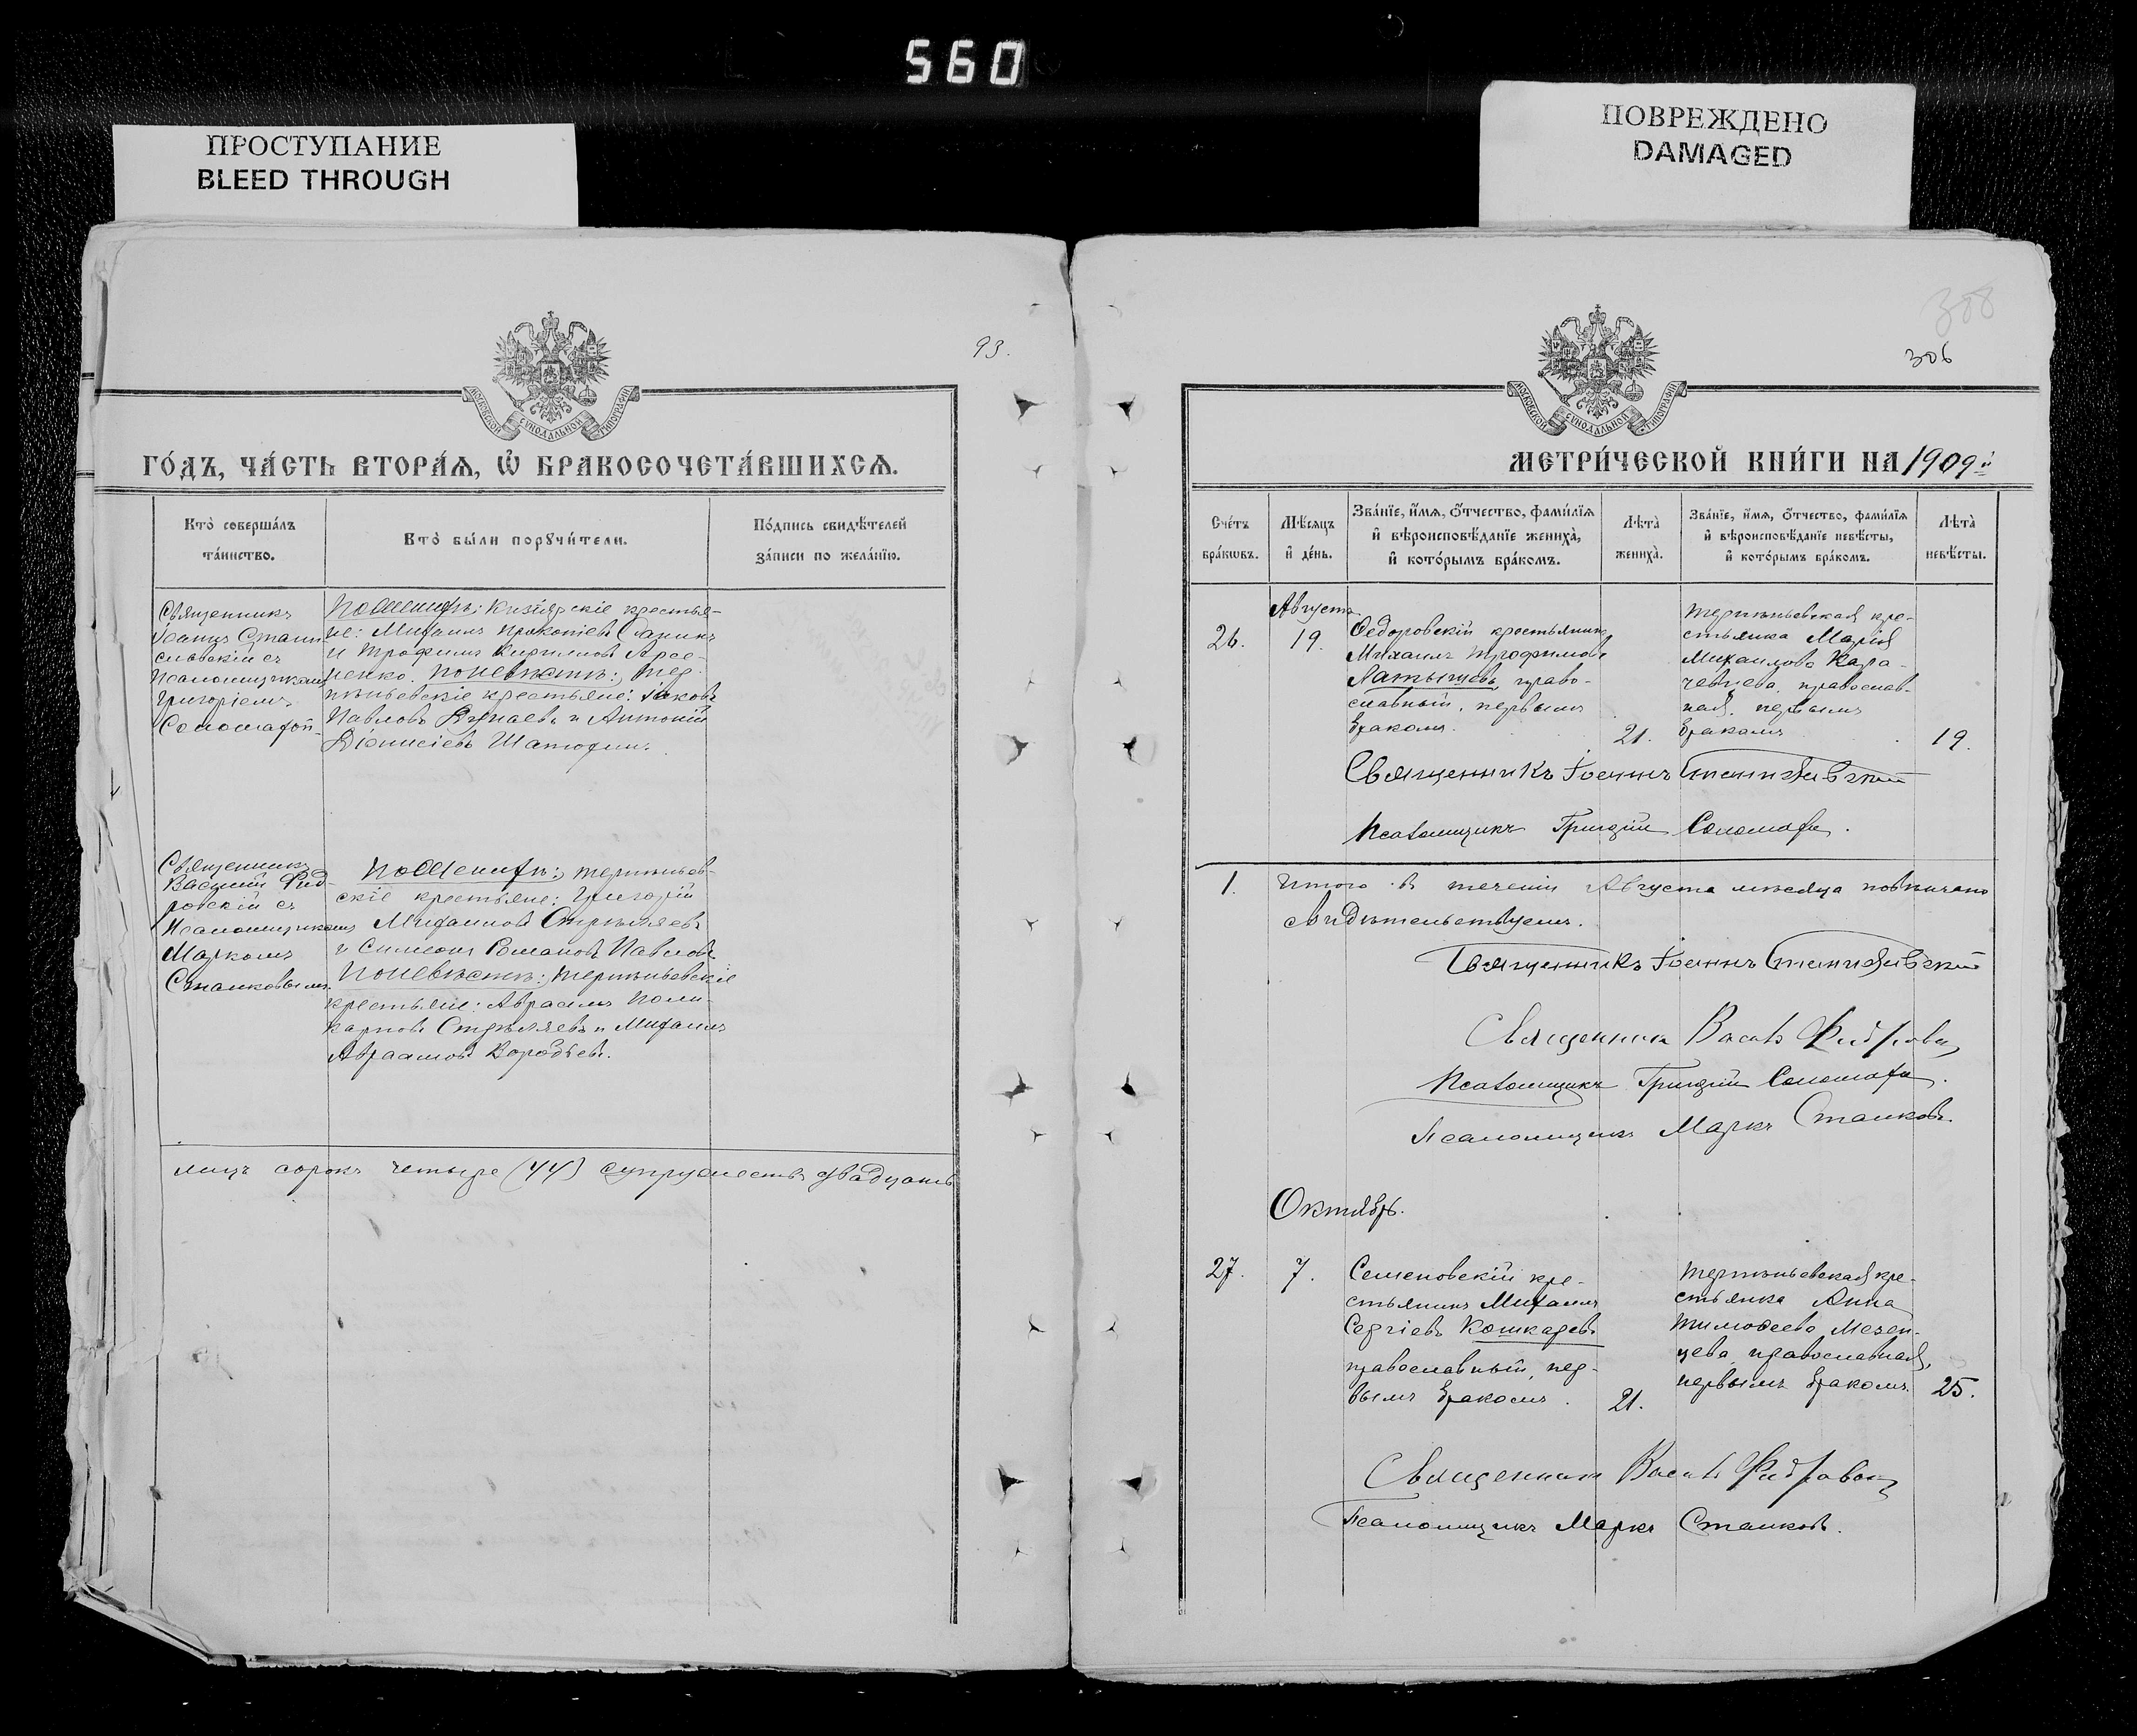 560
ПРОСТУПАНИЕ
BLEED THROUGH
ПОВРЕЖДЕНО
DAMAGED
93.
МОСКОВСКОЙ СѴНОДАЛЬНОЙ ТИПОГРАФІИ
ГО́ДЪ, ЧА́СТЬ ВТОРА́Ѧ, Ѽ БРАКОСОЧЕТА́ВШИХСѦ.
Кто̀ соверша́лъ
та́инство.
Кто̀ бы́ли порꙋчи́тели.
По́дпись свидѣ́телей
за́писи по жела́нїю.
Священникъ
Іоаннъ Стани
славскій съ
Псаломщикомъ
Григоріемъ
По Женихѣ: Кизіярскіе крестья-
не: Михаилъ Прокопіевъ
и Трофимъ Кириловъ Арсе-
ненко. По Невѣстѣ: Тер-
пѣньевскіе крестьяне: Іаковъ
Павловъ и Антоній
Діонисіевъ
Священникъ
Василій
съ
Псаломщикомъ
Маркомъ
Станковымъ.
По Женихѣ: Терпѣньев-
скіе крестьяне: Григорій
Михаиловъ Стрѣляевъ
и Симеонъ Романовъ Павловъ
По Невѣстѣ: Терпѣньевскіе
крестьяне: Авраамъ Поли-
карповъ Стрѣляевъ и Михаилъ
Авраамовъ Воробьевъ.
лицъ сорокъ четыре (44) супружествъ двадцать
308
306
МОСКОВСКОЙ СѴНОДАЛЬНОЙ ТИПОГРАФІИ
МЕТРИ́ЧЕСКОЙ КНИ́ГИ НА 1909й
Сче́тъ
бра́кѡвъ.
Мѣ́сѧцъ
и҆ де́нь.
Зва́нїе, и҆́мѧ, ѻ҆́тчество, фами́лїѧ
и҆ вѣроисповѣ́данїе жениха̀,
и҆ кото́рымъ бра́комъ.
Лѣ́та̀
жениха̀.
Зва́нїе, и҆́мѧ, ѻ҆́тчество, фами́лїѧ
и҆ вѣроисповѣ́данїе невѣ́сты,
и҆ кото́рымъ бра́комъ.
Лѣ́та̀
невѣ́сты.
Августъ
26. 19.
Ѳедоровскій крестьянинъ
Михаилъ Трофимовъ
Латышевъ, право-
славный, первымъ
бракомъ. 21.
Терпѣньевская кре-
стьянка Марія
Михаилова Кара-
чевцева, православ-
ная, первымъ
бракомъ 19.
Священникъ Іоаннъ Станиславскій
Псаломщикъ Григорій
1. Итого въ теченіи Августа мѣсяца повѣнчано
свидѣтельствуемъ.
Священникъ Іоаннъ Станиславскій
Священникъ
Псаломщикъ Григорій
Псаломщикъ Маркъ Станковъ.
Октябрь.
27. 7.
Семеновскій кре-
стьянинъ Михаилъ
Сергіевъ Кошкаревъ
православный, пер-
вымъ бракомъ. 21.
Терпѣньевская кре-
стьянка Анна
Тимоѳеева Мезен-
цева, православная,
первымъ бракомъ. 25.
Священникъ
Псаломщикъ Маркъ Станковъ.